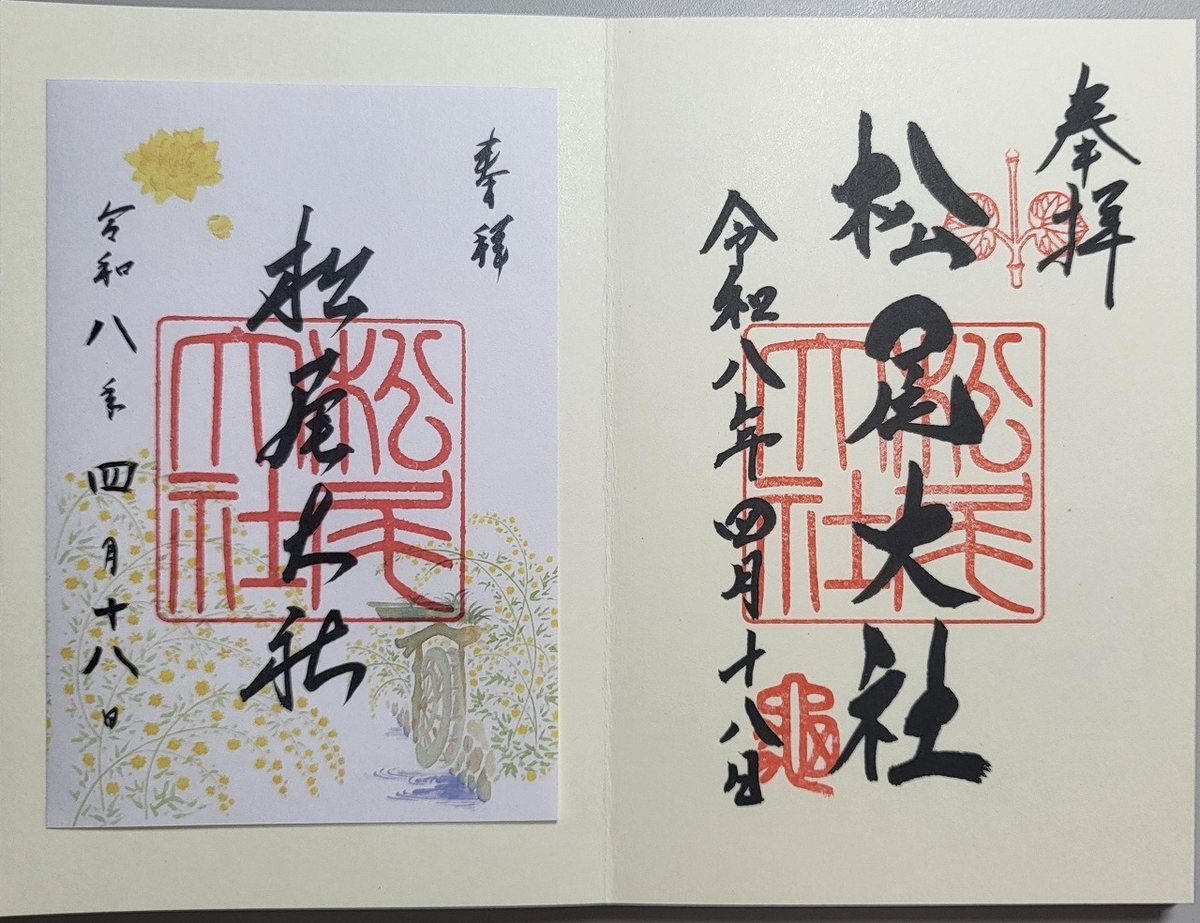 奉拝
松尾大社
令和八年四月十八日
松尾大社
亀
奉拝
松尾大社
令和八年四月十八日
松尾大社